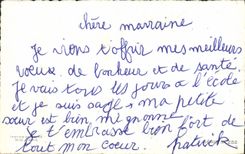 chère marraine
Je viens t'offrir mes meilleurs
voeux de bonheur et de santé.
Je vais tous les jours à l'école
et je suis sage ma petite
sœur et bien mignonne
Je t'embrasse bien fort de
tout mon coeur. patrick